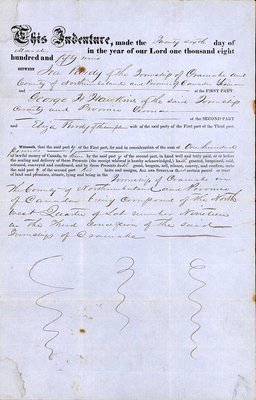 This Indenture, made the Twenty sixth day of
March in the year of our Lord one thousand eight
hundred and fifty nine
BETWEEN Ira Woody of the Township of Cramahe and
County of Northumberland and Province of Canada Yeoman
of the FIRST PART;
George H Hawkins of the said Township
County and Province Yeoman
of the SECOND PART
and Eliza Woody wife of the said party of the First Part of the Third Part.
Witnesseth, that the said party of the First Part, for and in consideration of the sum of One hundred
pounds
of lawful money of Canada, to him by the said party of the second part, in hand well and truly paid, at or before
the sealing and delivery of these Presents (the receipt whereof is hereby acknowledged,) hath granted, bargained, sold,
released, conveyed and confirmed, and by these Presents doth grant, bargain, sell, release, convey, and confirm, unto
the said party of the second part his heirs and assigns, ALL AND SINGULAR that certain parcel or tract
of land and premises, situate, lying and being in the Township of Cramahe in
The County of Northumberland and Province
of Canada being composed of the North
West Quarter of Lot number Nineteen
in the Third Concession of the said
Township of Cramahe